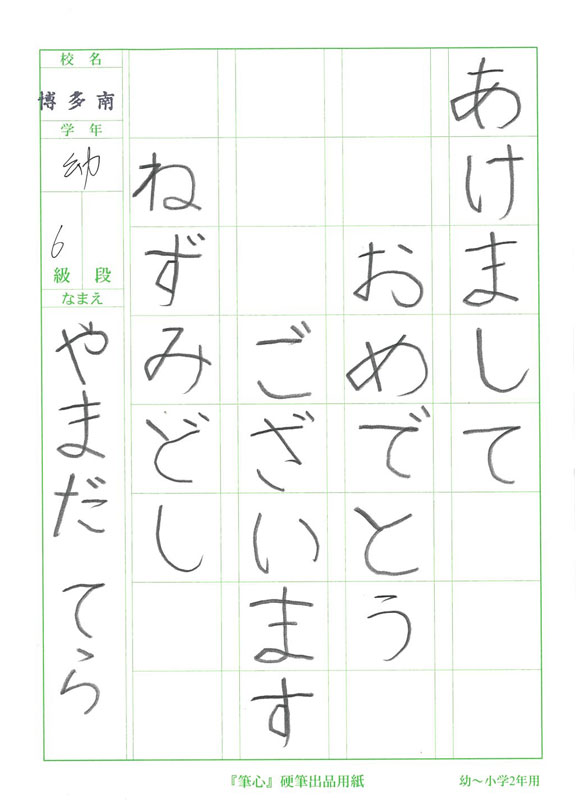 あけまして
おめでとう
ございます
ねずみどし
校名
博多南
学年
幼
6
級 段
なまえ
やまだ てら
『筆心』硬筆出品用紙
幼〜小学2年用